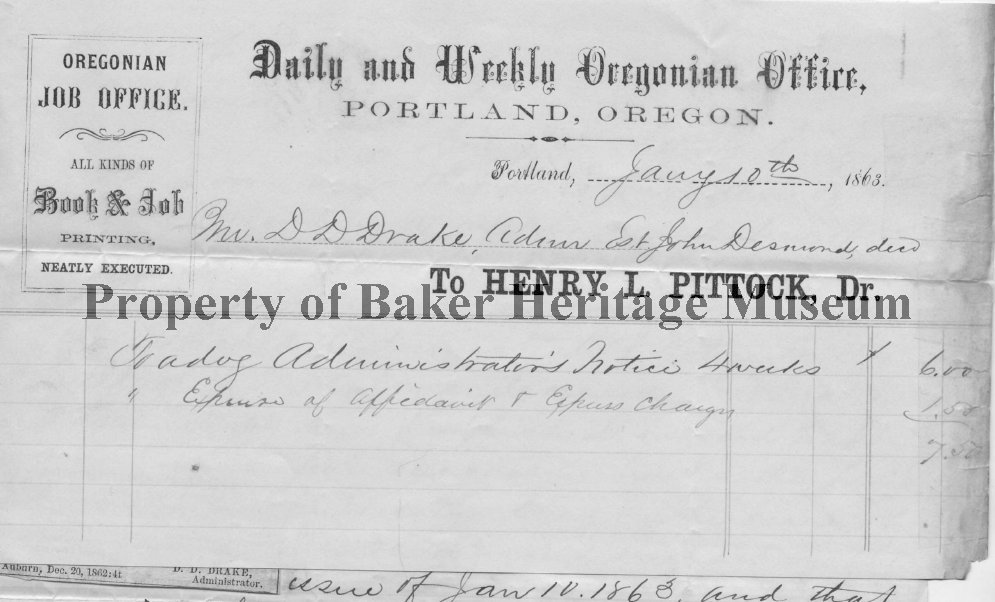 OREGONIAN
JOB OFFICE.
ALL KINDS OF
Book & Job
PRINTING,
NEATLY EXECUTED.
Daily and Weekly Oregonian Office,
PORTLAND, OREGON.
Portland, Jany 10th, 1863.
Mr. D D Drake, Admr Est John Desmond, decd
To HENRY L. PITTOCK, Dr.
Property of Baker Heritage Museum
To advg Administrator's Notice 4 weeks 6.00
" Expense of affidavit & Express charges 1.50
7.50
Auburn, Dec. 20, 1862:4t
D. D. DRAKE,
Administrator.
issue of Jan 10. 1863, and that